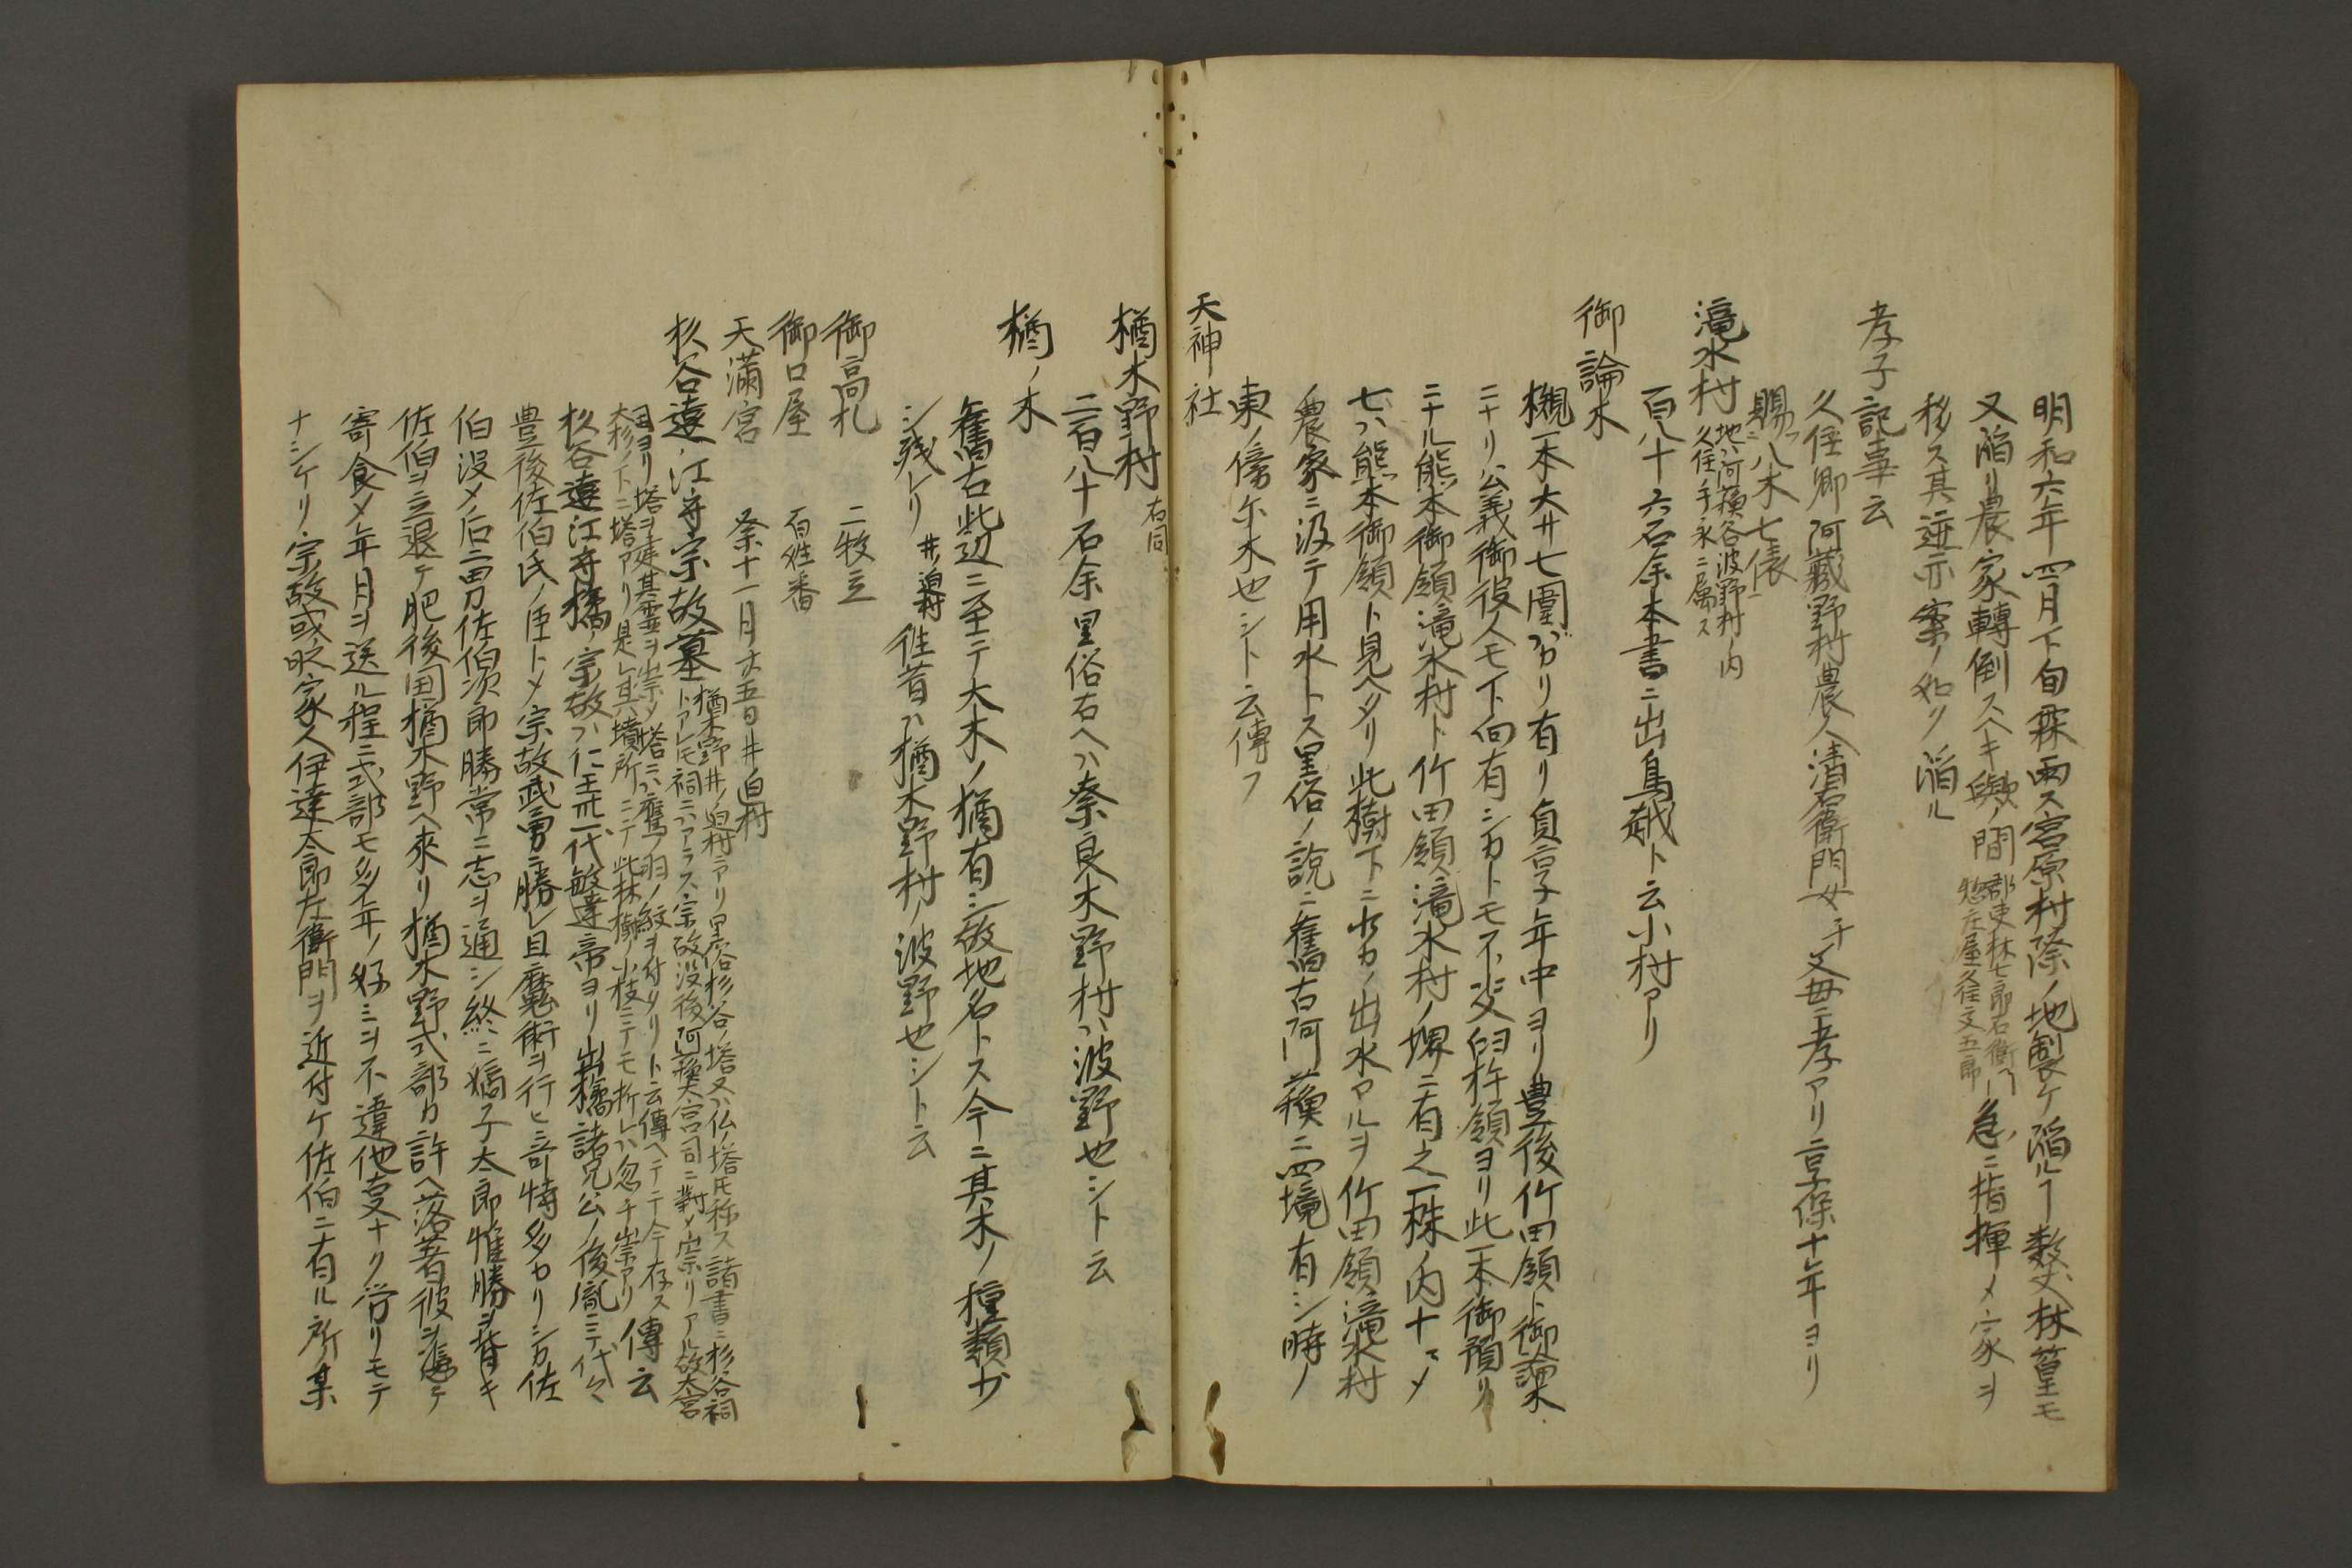 明和六年四月下旬霖雨ス宮原村際ノ地裂ケ陥ルヿ数丈林篁モ
又陥リ農家轉倒スヘキ歟ノ間
郡吏林七郎右衛門
惣庄屋久住文五郎
急ニ指揮メ家ヲ
移ス其迹亦案ノ如ク陥ル
孝子記事云
久住郷阿蔵野村農人清右衛門女チ父母ニ孝アリ享保十年ヨリ
賜フニ八木七俵
滝水村
地ハ河蘓谷波野村ノ内
久住手永ニ属ス
百八十六石余本書ニ出鳥越ト云小村アリ
御論木
槻一本大サ七圍バカリ有リ貞享年中ヨリ豊後竹田領ト御論木
ニナリ公義御役人モ下向有シカトモ不决臼杵領ヨリ此一本御預リ
ニナル熊本御領滝水村ト竹田領滝水村ノ堺ニ有之一株ノ内ナヽメ
七ハ熊本御領ト見ヘタリ此樹下ニ少カノ出水アルヲ竹田領滝水村
ノ農家ニ汲テ用水トス里俗ノ説ニ舊古阿蘓ニ四境有シ時ノ
東ノ傍尓木也シト云傳フ
天神ノ社
楢木野村 右同
二百八十石余里俗右ヘハ奈良木野村ハ波野也シト云
楢ノ木
舊古此辺ニ至テ大木ノ楢有シ故地名トス今ニ其木ノ種類少
シ残レリ
井ノ迫村
往昔ハ楢木野村ノ波野也シト云
御高札 二牧立
御口屋 百姓番
天満宮 祭十一月廿五日井ノ迫村
杦谷遠江守宗故墓
楢木野井ノ迫村ニアリ里俗杉谷ノ塔又ハ仏ノ塔氏称ス諸書ニ杉谷祠
トアレモ祠ニハアラス宗故没後阿蘓大宮司ニ對メ崇リアル故大宮
司ヨリ塔ヲ建其霊ヲ崇メ塔ニハ鷹ノ羽ノ紋ヲ付タリト云傳ヘテ于今存ス
大杉ノ下ニ塔アリ是レ其墳所ニテ此林樹ノ小枝ニテモ折レハ忽チ崇アリ
傳云
杦谷遠江守橘ノ宗故ハ仁王三十一代敏達帝ヨリ出橘諸兄公ノ後胤ニテ代々
豊後佐伯氏ノ臣トメ宗故武勇ニ勝レ且魔術ヲ行ヒ奇特多カリシカ佐
伯没メ后二男佐伯次郎勝常ニ志ヲ通シ終ニ嫡子太郎惟勝ヲ背キ
佐伯ヲ立退テ肥後国楢木野ヘ来リ楢木野式部カ許ヘ落著彼ヲ憑テ
寄食メ年月ヲ送ル程ニ式部モ多年ノ好ミヲ不違他事ナク労リモテ
ナシケリ宗故或ハ家人伊達太郎左衛門ヲ近付ケ佐伯ニ有ル所ノ某